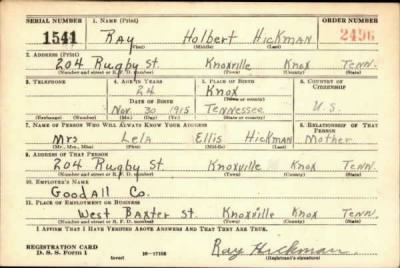 SERIAL NUMBER 1. NAME (Print) ORDER NUMBER
1541 Ray Holbert Hickman 2496
(First) (Middle) (Last)
2. ADDRESS (Print)
204 Rugby St. Knoxville Knox Tenn.
(Number and street or R. F. D. number) (Town) (County) (State)
3. TELEPHONE 4. AGE IN YEARS 5. PLACE OF BIRTH 6. COUNTRY OF CITIZENSHIP
24 Knox
DATE OF BIRTH (Town or county)
Nov. 30 1915 Tennessee U.S.
(Exchange) (Number) (Mo.) (Day) (Yr.) (State or country)
7. NAME OF PERSON WHO WILL ALWAYS KNOW YOUR ADDRESS 8. RELATIONSHIP OF THAT PERSON
Mrs Lela Ellis Hickman Mother
(Mr., Mrs., Miss) (First) (Middle) (Last)
9. ADDRESS OF THAT PERSON
204 Rugby St. Knoxville Knox Tenn.
(Number and street or R. F. D. number) (Town) (County) (State)
10. EMPLOYER'S NAME
Goodall Co.
11. PLACE OF EMPLOYMENT OR BUSINESS
West Baxter St. Knoxville Knox Tenn.
(Number and street or R. F. D. number) (Town) (County) (State)
I AFFIRM THAT I HAVE VERIFIED ABOVE ANSWERS AND THAT THEY ARE TRUE.
REGISTRATION CARD
D. S. S. Form 1 (over) Ray Hickman.
(Registrant's signature)